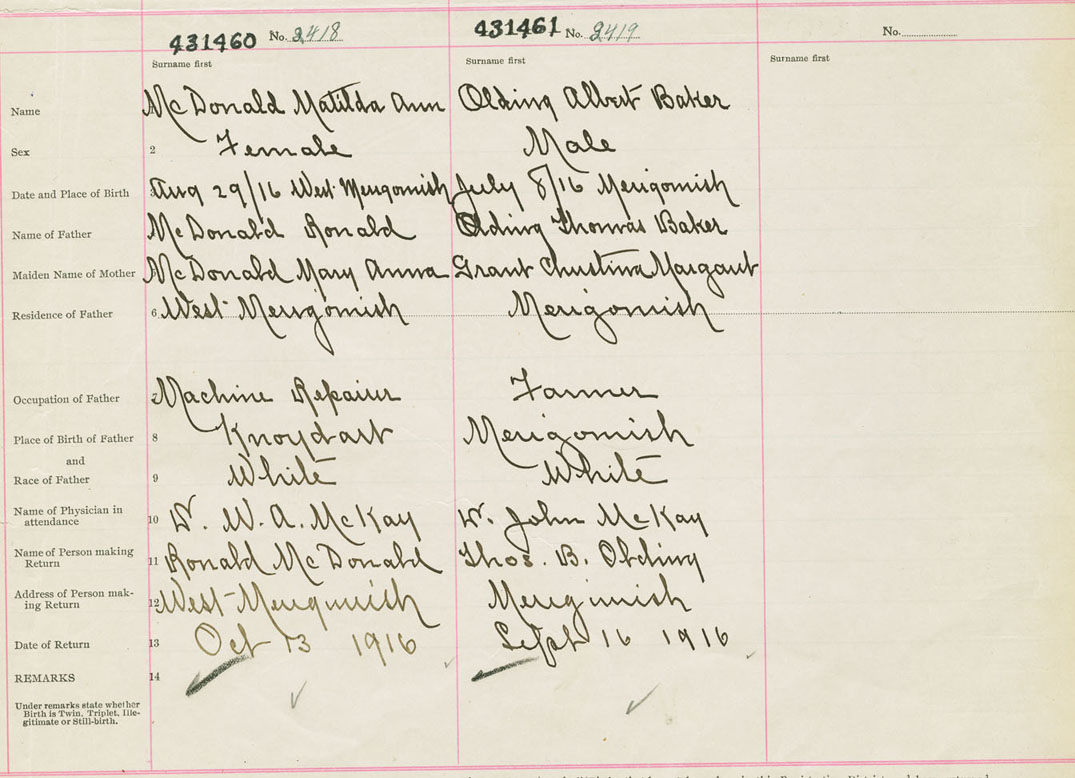 431460 No. 2418 431461 No. 2419 No.
Surname first Surname first Surname first
Name McDonald Matilda Ann Olding Albert Baker
Sex 2 Female Male
Date and Place of Birth Aug 29/16 West Merigomish July 8/16 Merigomish
Name of Father McDonald Ronald Olding Thomas Baker
Maiden Name of Mother McDonald Mary Anna Grant Christina Margaret
Residence of Father 6 West Merigomish Merigomish
Occupation of Father Machine Repairer Farmer
Place of Birth of Father 8 Knoydart Merigomish
and
Race of Father 9 White White
Name of Physician in
attendance 10 Dr. W. A. McKay Dr. John McKay
Name of Person making
Return 11 Ronald McDonald Thos. B. Olding
Address of Person mak-
ing Return 12 West Merigmish Merigmish
Date of Return 13 Oct 13 1916 Sept 16 1916
REMARKS 14
Under remarks state whether
Birth is Twin, Triplet, Ille-
gitimate or Still-birth.